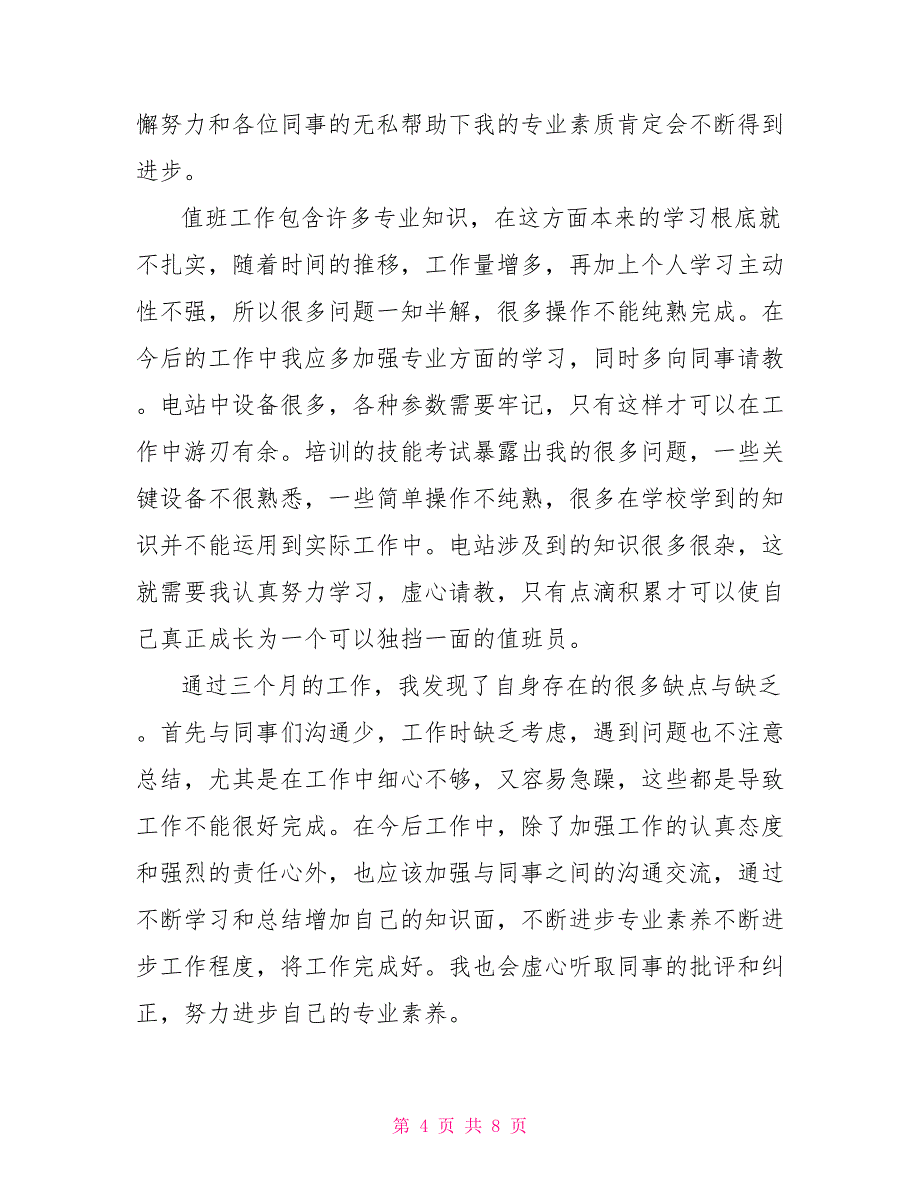 懈努力和各位同事的无私帮助下我的专业素质肯定会不断得到
进步。
值班工作包含许多专业知识，在这方面本来的学习根底就
不扎实，随着时间的推移，工作量增多，再加上个人学习主动
性不强，所以很多问题一知半解，很多操作不能纯熟完成。在
今后的工作中我应多加强专业方面的学习，同时多向同事请教
。电站中设备很多，各种参数需要牢记，只有这样才可以在工
作中游刃有余。培训的技能考试暴露出我的很多问题，一些关
键设备不很熟悉，一些简单操作不纯熟，很多在学校学到的知
识并不能运用到实际工作中。电站涉及到的知识很多很杂，这
就需要我认真努力学习，虚心请教，只有点滴积累才可以使自
己真正成长为一个可以独挡一面的值班员。
通过三个月的工作，我发现了自身存在的很多缺点与缺乏
。首先与同事们沟通少，工作时缺乏考虑，遇到问题也不注意
总结，尤其是在工作中细心不够，又容易急躁，这些都是导致
工作不能很好完成。在今后工作中，除了加强工作的认真态度
和强烈的责任心外，也应该加强与同事之间的沟通交流，通过
不断学习和总结增加自己的知识面，不断进步专业素养不断进
步工作程度，将工作完成好。我也会虚心听取同事的批评和纠
正，努力进步自己的专业素养。
第 4 页 共 8 页